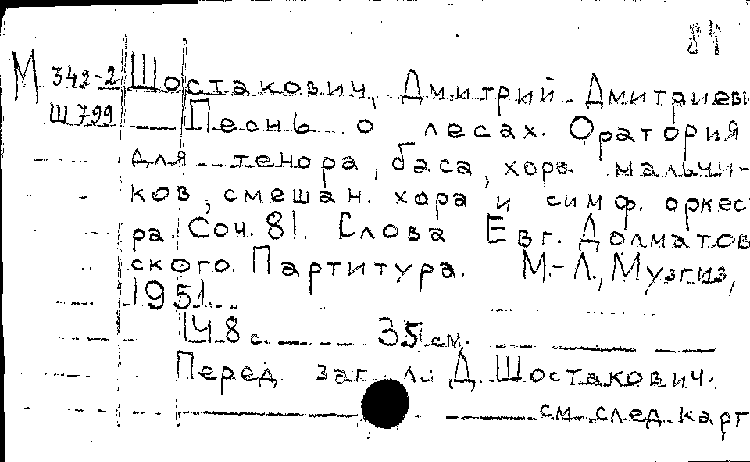 84
М 342-2 Шостакович, Дмитрий Дмитриеви
Ш 799 Песнь о лесах. Оратория
для тенора, баса, хора мальчи-
ков, смешан. хора и симф. оркес
ра. Соч. 81. Слова Евг. Долматов
ского. Партитура. М.-Л., Музгиз,
1951.
148 с. 35 см.
Перед заг. Д. Шостакович.
см. след. карт